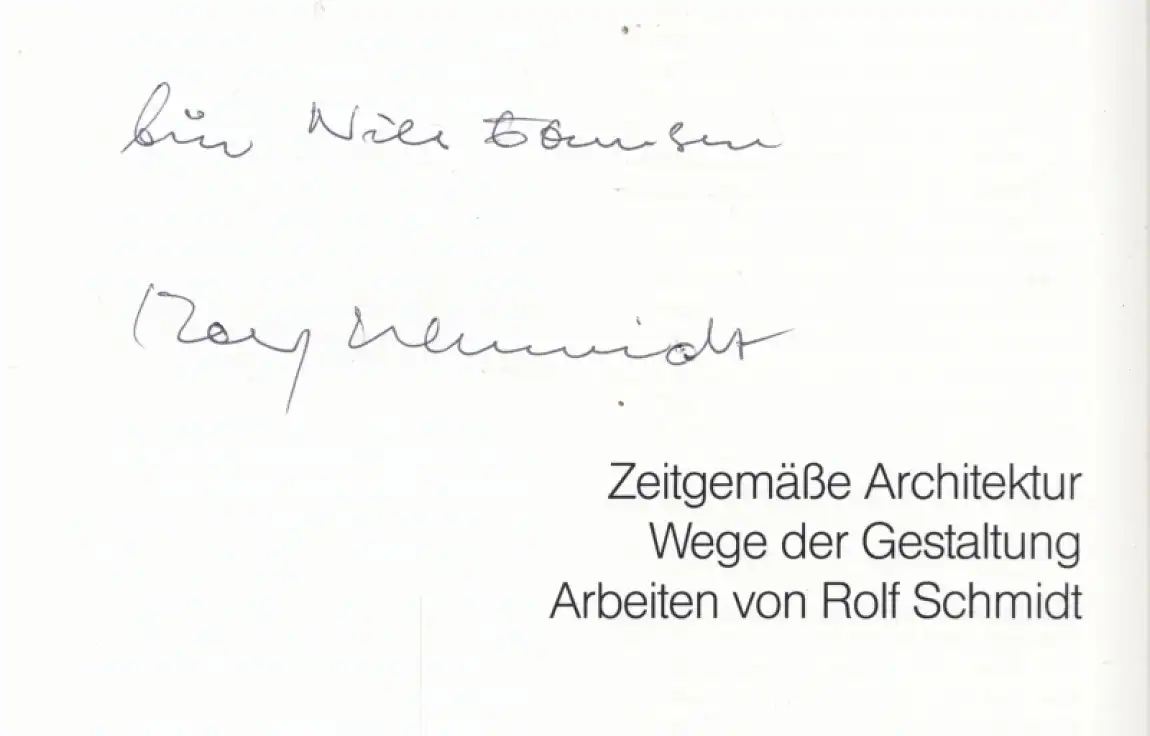 für Nils
Rolf Schmidt
Zeitgemäße Architektur
Wege der Gestaltung
Arbeiten von Rolf Schmidt